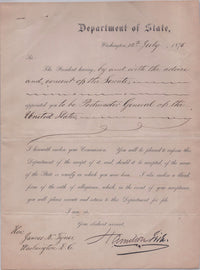 Department of State,
Washington, 12th July, 1876
To
The President having, by and with the advice
and consent of the Senate,
appointed you to be Postmaster General of the
United States,
I herewith enclose your Commission. You will be pleased to inform this
Department of the receipt of it, and should it be accepted, of the name
of the State in which you were born. I also enclose a blank
form of the oath of allegiance, which, in the event of your acceptance
you will please execute and return to this Department for file.
I am, sir,
Your obedient servant,
Hamilton Fish.
Hon:
James N. Tyner
Washington, D.C.